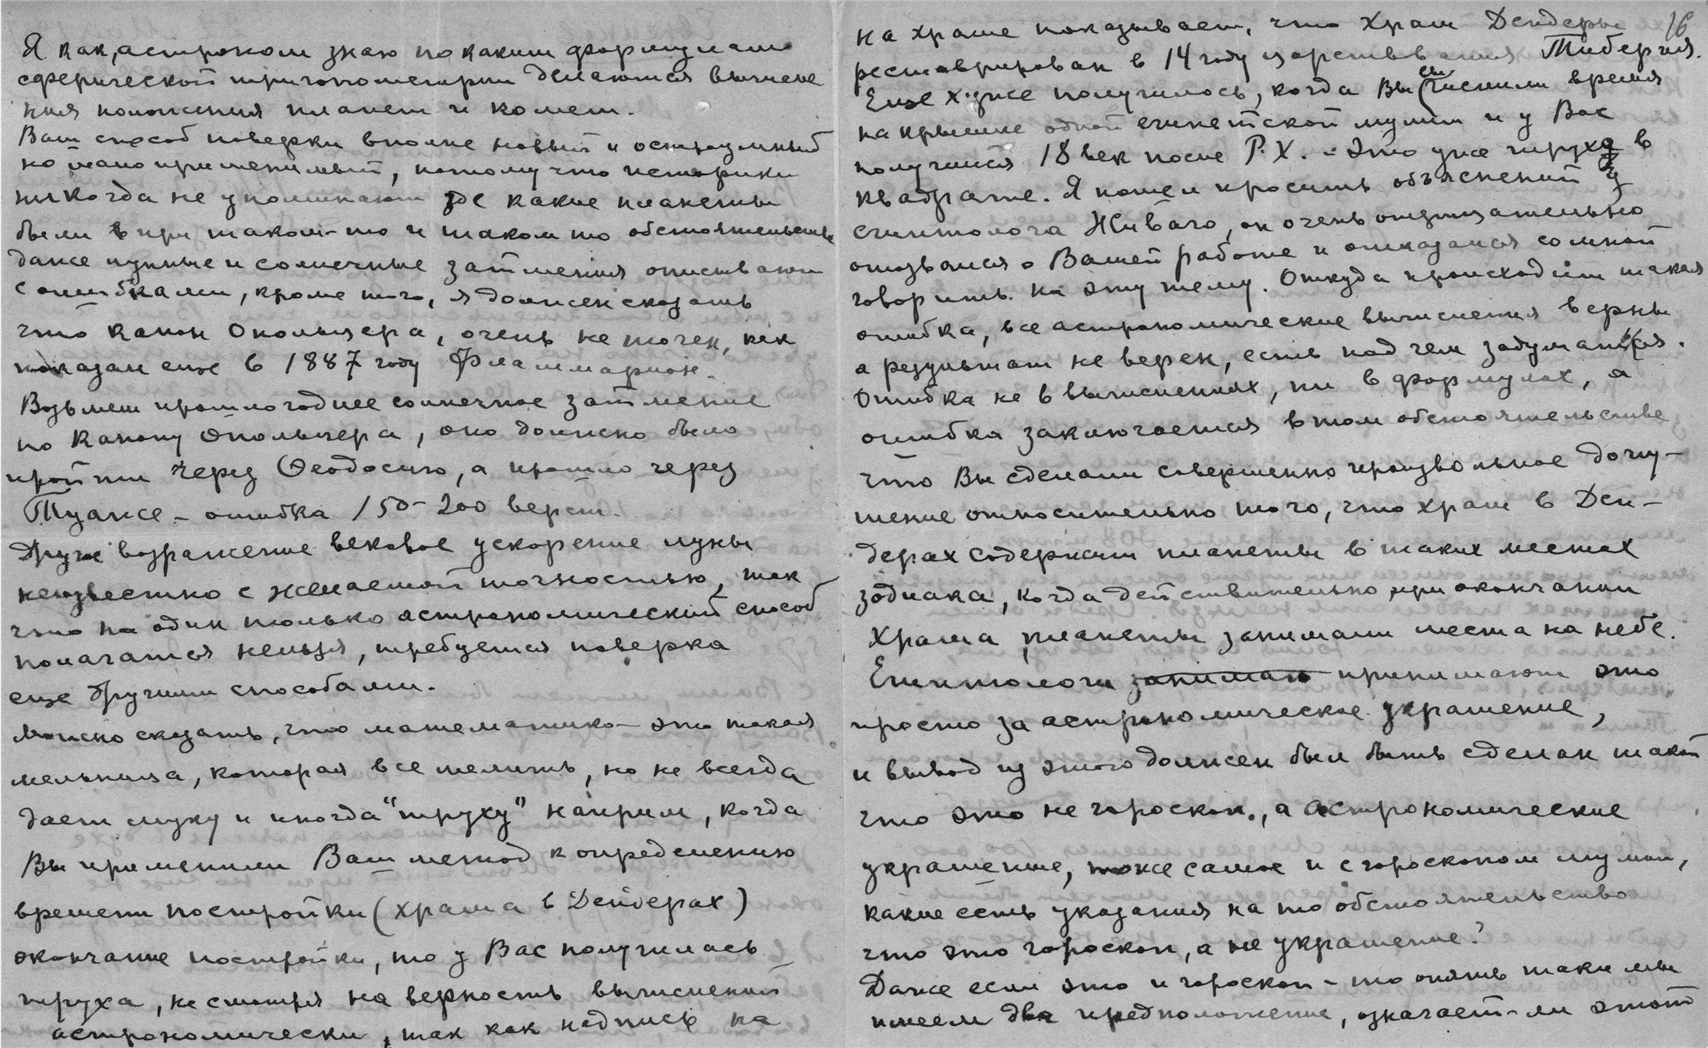 Я как, астроном знаю по каким формулам
сферической тригонометрии делаются вычисле
ния положения планет и комет.
Ваш способ поверки вполне новый и остроумный
но мало применимый, потому что историки
никогда не упоминают где какие планеты
были при таком-то и таком то обстоятельстве
даже лунные и солнечные затмения описывают
с ошибками, кроме того, я должен сказать
что канон Опольцера, очень не точен, как
показал еще в 1887 году Фламмарион.
Возьмем прошлогоднее солнечное затмение
по канону Опольцера, оно должно было
пройти через Феодосию, а прошло через
Туапсе – ошибка 150–200 верст.
Другое возражение вековое ускорение луны
неизвестно с желаемой точностью, так
что на один только астрономический способ
полагатся нельзя, требуется поверка
еще другими способами.
Можно сказать, что математика – это такая
мельница, которая все мелить, но не всегда
дает муку и иногда "труху" наприм, когда
Вы применили Ваш метод к определению
времени постройки (храма в Дендерах)
окончание постройки, то у Вас получилась
труха, не смотря на верность вычислений
астрономически, так как надпись на
16
на храме показывает, что храм Дендеры
реставрирован в 14 году царствования Тиберия.
Еще хуже получилось, когда Вы вычислили время
на крышке одной египетской мумии и у Вас
получился 18 век после Р.Х. – это уже труха в
квадрате. Я пошел просить объяснений у
египтолога Живаго, он очень отрицательно
отозвался о Вашей работе и отказался со мной
говорить на эту тему. Откуда происходит такая
ошибка, все астрономические вычисления верны
а результат не верен, есть над чем задуматься.
Ошибка не в вычислениях, ни в формулах, а
ошибка заключается в том обстоятельстве
что Вы сделали совершенно произвольное допу-
щение относительно того, что храм в Ден-
дерах содержит планеты в таких местах
зодиака, когда действительно при окончании
храма, планеты занимали места на небе.
Египтологи занимаю принимают это
просто за астрономическое украшение,
и вывод из этого должен был быть сделан такой
что это не гороскоп, а астрономические
украшение, тоже самое и с гороскопом мумии,
какие есть указания на то обстоятельство
что это гороскоп, а не украшение?
Даже если это и гороскоп – то опять таки мы
имеем два предположение, означает-ли этот